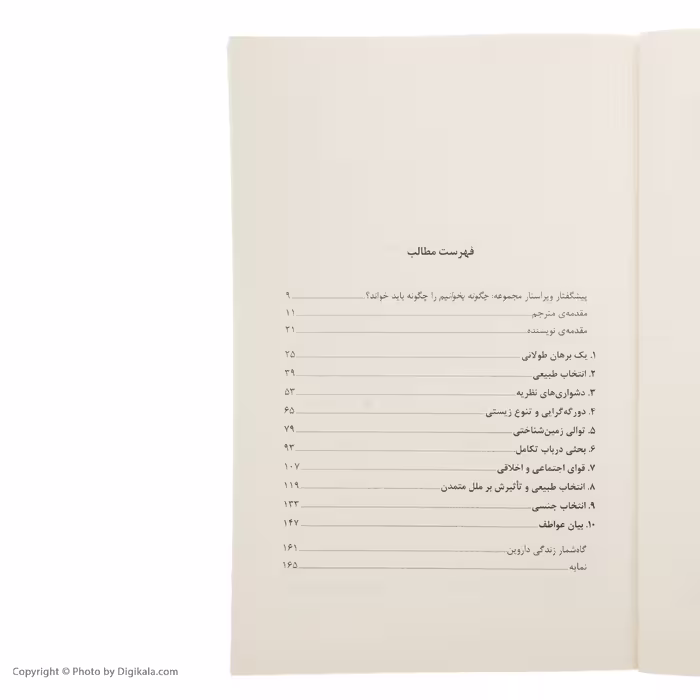 فهرست مطالب
پیشگفتار ویراستار مجموعه: چگونه بخوانیم را چگونه باید خواند؟ ۹
مقدمه‌ی مترجم ۱۱
مقدمه‌ی نویسنده ۲۱
۱. یک برهان طولانی ۲۵
۲. انتخاب طبیعی ۳۹
۳. دشواری‌های نظریه ۵۳
۴. دورگه‌گرایی و تنوع زیستی ۶۵
۵. توالی زمین‌شناختی ۷۹
۶. بحثی درباب تکامل ۹۳
۷. قوای اجتماعی و اخلاقی ۱۰۷
۸. انتخاب طبیعی و تأثیرش بر ملل متمدن ۱۱۹
۹. انتخاب جنسی ۱۳۳
۱۰. بیان عواطف ۱۴۷
گاه‌شمار زندگی داروین ۱۶۱
نمایه ۱۶۵
Copyright © Photo by Digikala.com